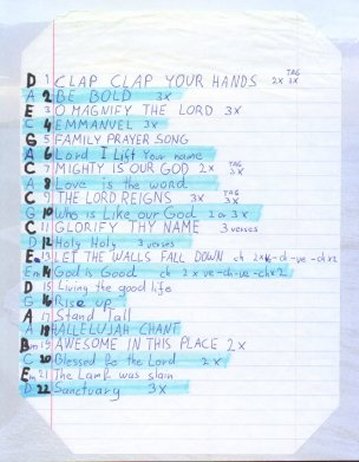 D 1 CLAP CLAP YOUR HANDS 2x TAG 3x
A 2 BE BOLD 3x
E 3 O MAGNIFY THE LORD 3x
C 4 EMMANUEL 3x
G 5 FAMILY PRAYER SONG
A 6 Lord I Lift Your name
C 7 MIGHTY IS OUR GOD 2x TAG 3x
A 8 Love is the word
C 9 THE LORD REIGNS 3x TAG 3x
G 10 Who is Like our God 2 or 3x
C 11 GLORIFY THY NAME 3 verses
D 12 Holy Holy 3 verses
Em 13 LET THE WALLS FALL DOWN ch 2x ve-ch-ve-chx2
Em 14 God is Good ch 2x ve-ch-ve-chx2
D 15 Living the good life
G 16 Rise up
A 17 Stand Tall
A 18 HALLELUJAH CHANT
Bm 19 AWESOME IN THIS PLACE 2x
C 20 Blessed be the Lord 2x
Em 21 The Lamb was slain
D 22 Sanctuary 3x